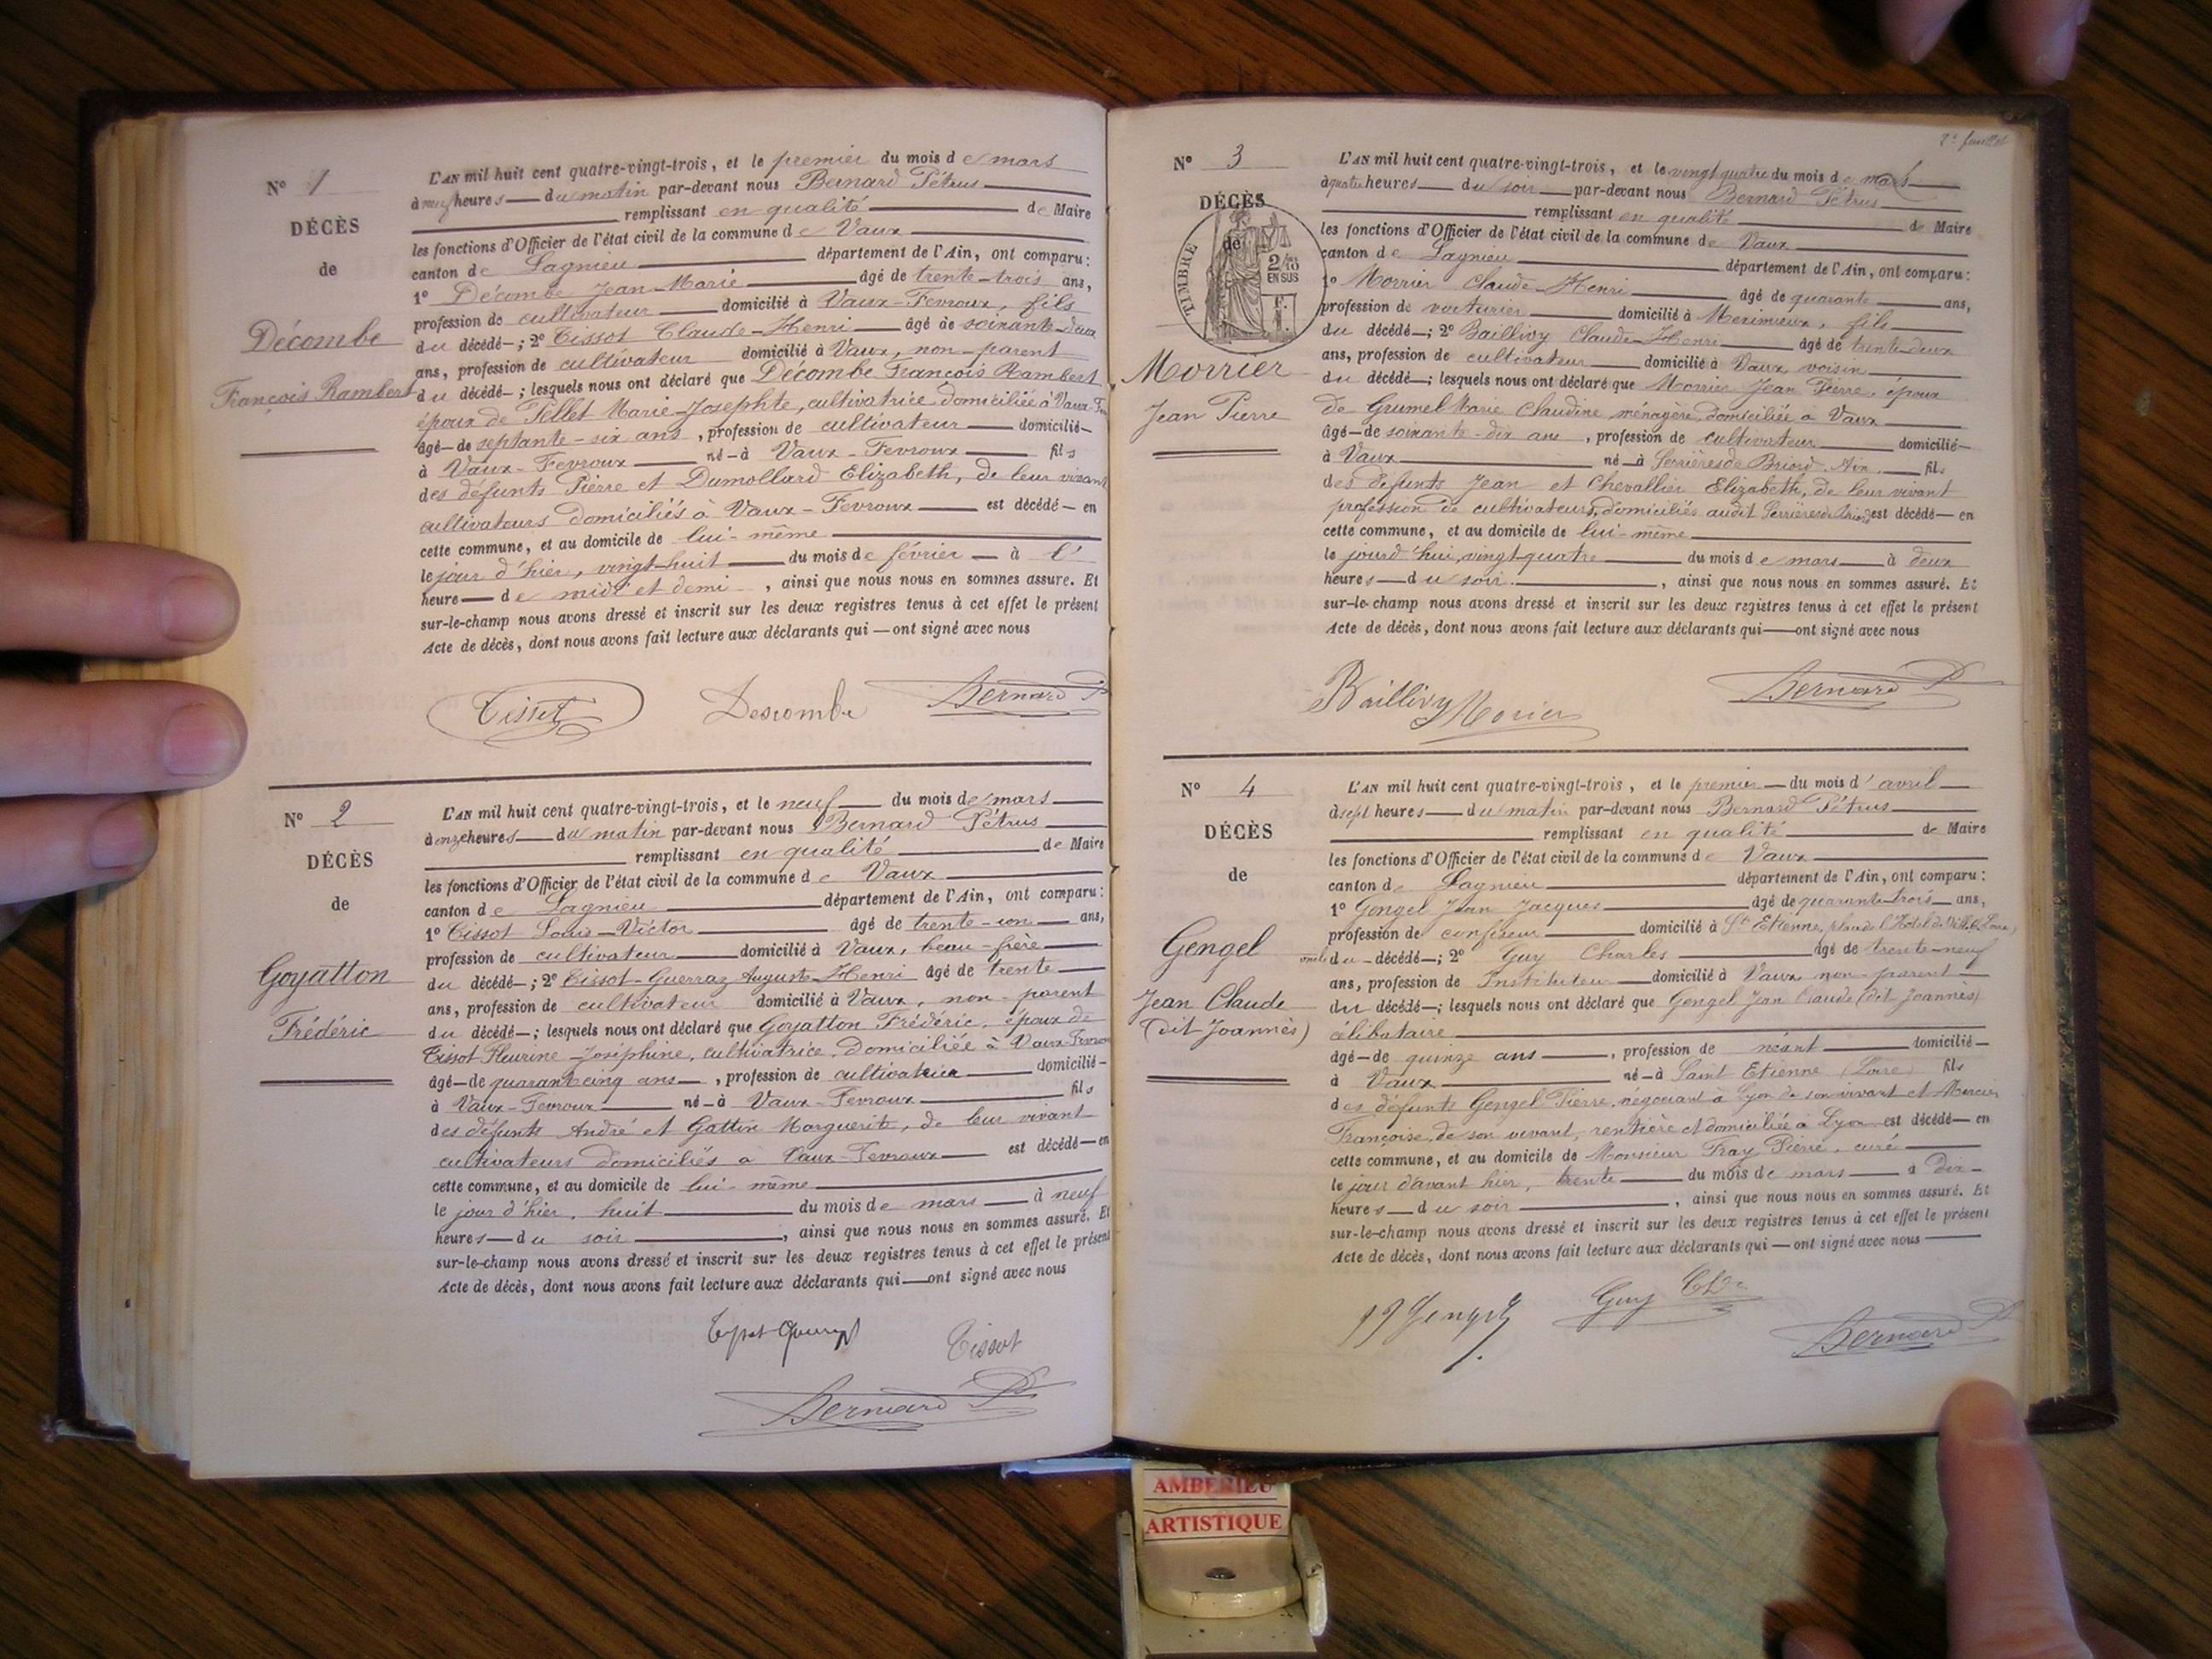 N° 1
DÉCÈS
de
Décombe
François Rambert
L'AN mil huit cent quatre-vingt-trois, et le premier du mois de mars
à neuf heures du matin par-devant nous Bernard Pétrus
remplissant en qualité de Maire
les fonctions d'Officier de l'état civil de la commune de Vaux
canton de Lagnieu département de l'Ain, ont comparu:
1° Décombe Jean-Marie âgé de trente-trois ans,
profession de cultivateur domicilié à Vaux-Fevroux, fils
du décédé; 2° Tissot Claude-Henri âgé de soixante-deux
ans, profession de cultivateur domicilié à Vaux, non-parent
du décédé; lesquels nous ont déclaré que Décombe François Rambert
époux de Pellet Marie-Josephte, cultivatrice domiciliée à Vaux-Fev
âgé de septante-six ans, profession de cultivateur domicilié
à Vaux-Fevroux né à Vaux-Fevroux fils
des défunts Pierre et Dumollard Elizabeth, de leur vivant
cultivateurs domiciliés à Vaux-Fevroux est décédé en
cette commune, et au domicile de lui-même
le jour d'hier, vingt-huit du mois de février à l'
heure de midi et demi, ainsi que nous nous en sommes assuré. Et
sur-le-champ nous avons dressé et inscrit sur les deux registres tenus à cet effet le présent
Acte de décès, dont nous avons fait lecture aux déclarants qui ont signé avec nous
Tissot Descombe Bernard P
N° 2
DÉCÈS
de
Goyatton
Frédéric
L'AN mil huit cent quatre-vingt-trois, et le neuf du mois de mars
à onze heures du matin par-devant nous Bernard Pétrus
remplissant en qualité de Maire
les fonctions d'Officier de l'état civil de la commune de Vaux
canton de Lagnieu département de l'Ain, ont comparu:
1° Tissot Louis-Victor âgé de trente-un ans,
profession de cultivateur domicilié à Vaux, beau-frère
du décédé; 2° Tissot-Guerraz Auguste-Henri âgé de trente
ans, profession de cultivateur domicilié à Vaux, non-parent
du décédé; lesquels nous ont déclaré que Goyatton Frédéric, époux de
Tissot Fleurine-Joséphine, cultivatrice, domiciliée à Vaux-Fevroux
âgé de quarante cinq ans, profession de cultivateur domicilié
à Vaux-Fevroux né à Vaux-Fevroux fils
des défunts André et Gattin Marguerite, de leur vivant
cultivateurs domiciliés à Vaux-Fevroux est décédé en
cette commune, et au domicile de lui-même
le jour d'hier, huit du mois de mars à neuf
heures du soir, ainsi que nous nous en sommes assuré. Et
sur-le-champ nous avons dressé et inscrit sur les deux registres tenus à cet effet le présent
Acte de décès, dont nous avons fait lecture aux déclarants qui ont signé avec nous
Tissot
Bernard P
2e feuillet
N° 3
DÉCÈS
de
TIMBRE
2/10
EN SUS
F.
Morrier
Jean Pierre
L'AN mil huit cent quatre-vingt-trois, et le vingt quatre du mois de mars
à quatre heures du soir par-devant nous Bernard Pétrus
remplissant en qualité de Maire
les fonctions d'Officier de l'état civil de la commune de Vaux
canton de Lagnieu département de l'Ain, ont comparu:
1° Morrier Claude-Henri âgé de quarante ans,
profession de voiturier domicilié à Meximieux, fils
du décédé; 2° Baillivy Claude-Henri âgé de trente-deux
ans, profession de cultivateur domicilié à Vaux, voisin
du décédé; lesquels nous ont déclaré que Morrier Jean Pierre, époux
de Grumel Marie Claudine ménagère, domiciliée à Vaux
âgé de soixante-dix ans, profession de cultivateur domicilié
à Vaux né à Serrières de Briord Ain, fils
des défunts Jean et Chevallier Elizabeth, de leur vivant
profession de cultivateurs, domiciliés audit Serrières de Briord est décédé en
cette commune, et au domicile de lui-même
le jourd'hui, vingt-quatre du mois de mars à deux
heures du soir, ainsi que nous nous en sommes assuré. Et
sur-le-champ nous avons dressé et inscrit sur les deux registres tenus à cet effet le présent
Acte de décès, dont nous avons fait lecture aux déclarants qui ont signé avec nous
Baillivy Morier Bernard P
N° 4
DÉCÈS
de
Gengel
Jean Claude
(dit Joannès)
L'AN mil huit cent quatre-vingt-trois, et le premier du mois d'avril
à sept heures du matin par-devant nous Bernard Pétrus
remplissant en qualité de Maire
les fonctions d'Officier de l'état civil de la commune de Vaux
canton de Lagnieu département de l'Ain, ont comparu:
1° Gengel Jean Jacques âgé de quarante-trois ans,
profession de confiseur domicilié à St Etienne, place de l'Hôtel de Ville, Loire,
oncle du décédé; 2° Guy Charles âgé de trente-neuf
ans, profession de Instituteur domicilié à Vaux non-parent
du décédé; lesquels nous ont déclaré que Gengel Jean Claude (dit Joannès)
célibataire
âgé de quinze ans, profession de néant domicilié
à Vaux né à Saint Etienne (Loire) fils
des défunts Gengel Pierre, négociant à Lyon de son vivant et Mercier
Françoise, de son vivant, rentière et domiciliée à Lyon est décédé en
cette commune, et au domicile de Monsieur Fray Pierre, curé
le jour d'avant hier, trente du mois de mars à dix
heures du soir, ainsi que nous nous en sommes assuré. Et
sur-le-champ nous avons dressé et inscrit sur les deux registres tenus à cet effet le présent
Acte de décès, dont nous avons fait lecture aux déclarants qui ont signé avec nous
JJ Gengel Guy Ch
Bernard P
AMBERIEU
ARTISTIQUE